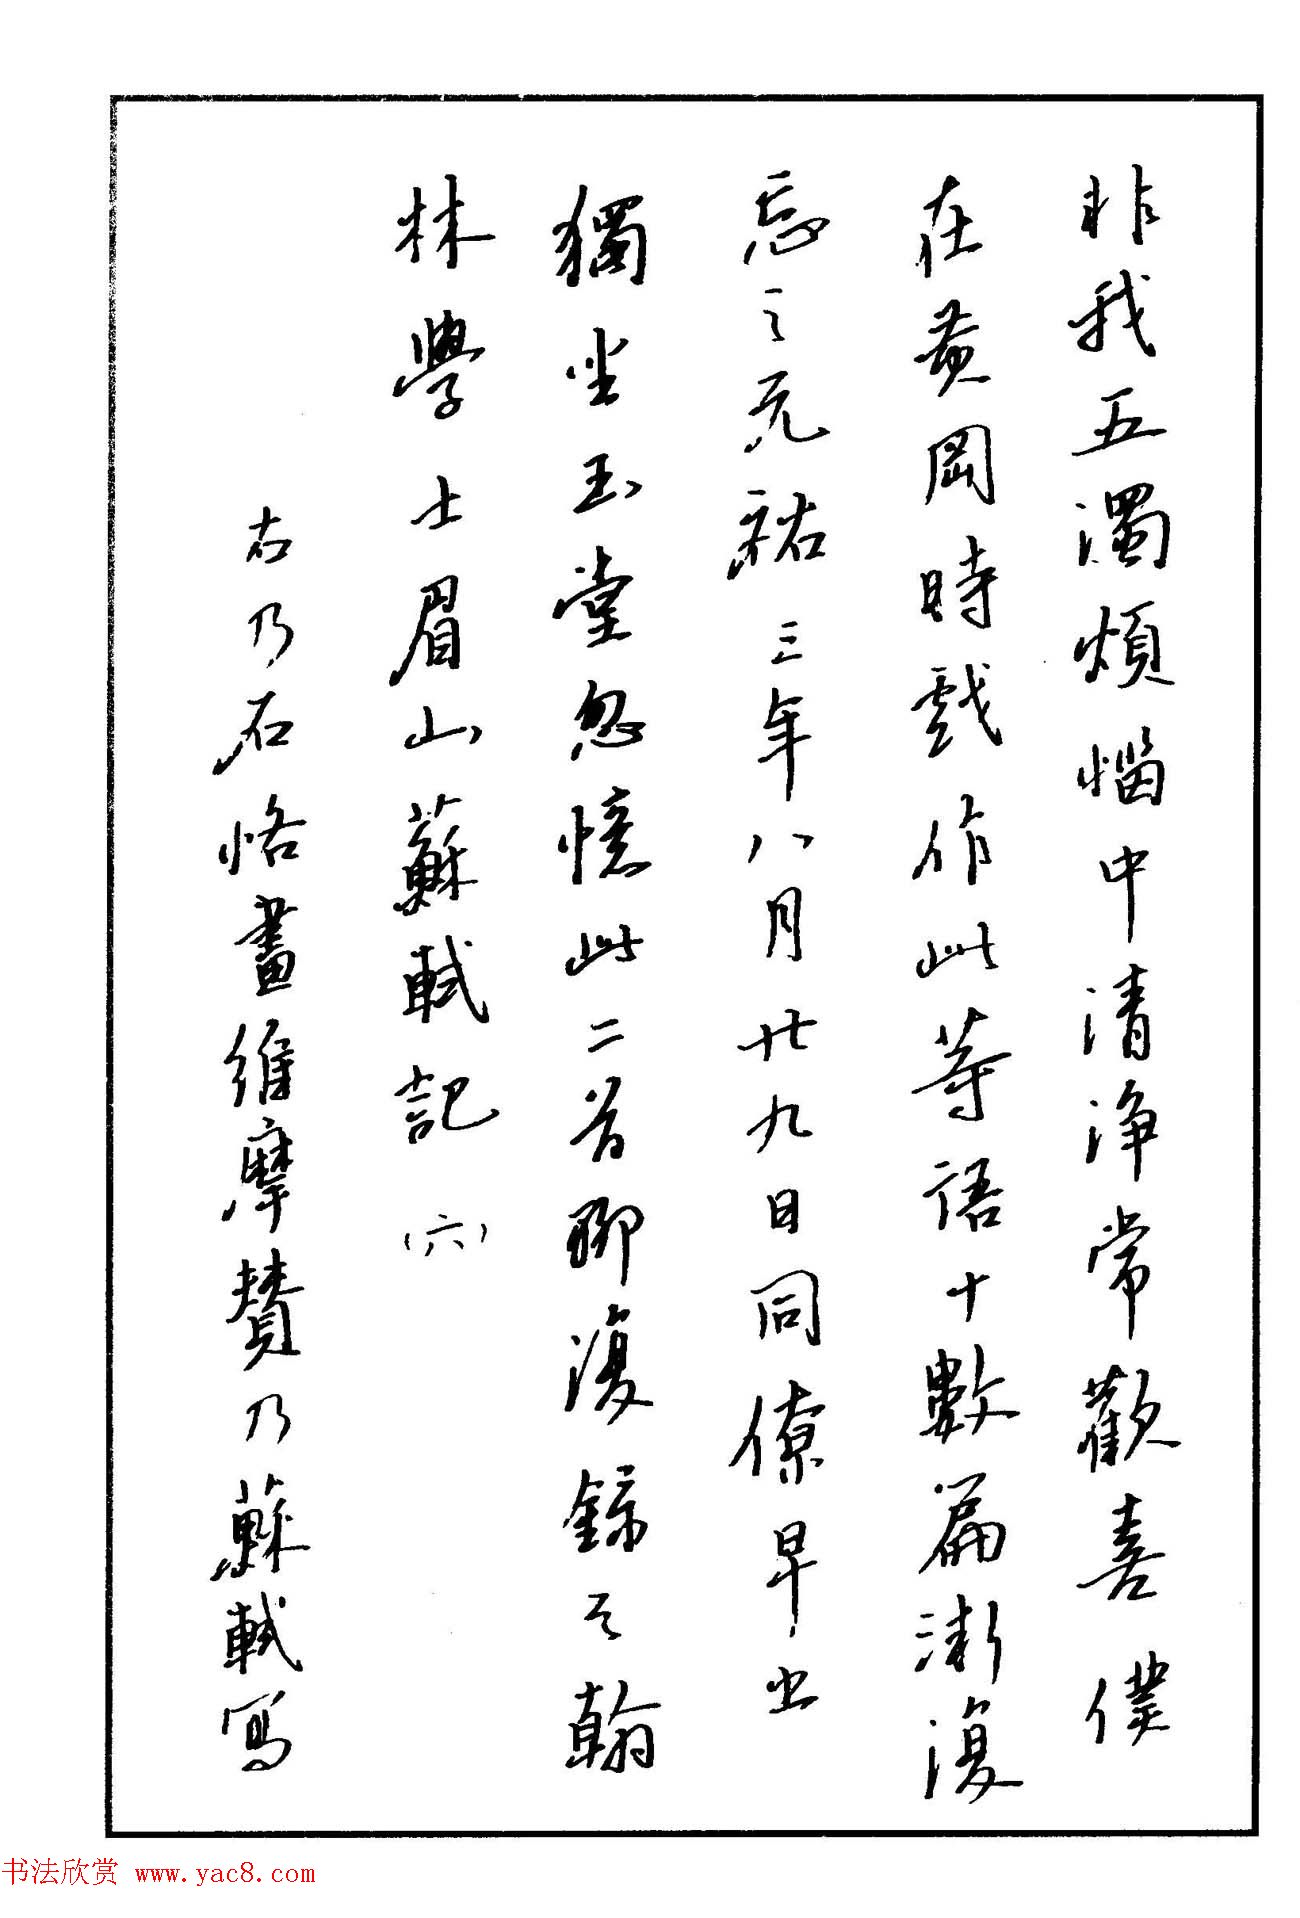 非我五濁煩惱中清淨常歡喜僕
在黃岡時戲作此等語十數篇漸復
忘之元祐三年八月廿九日同僚早出
獨坐玉堂忽憶此二首聊復錄之翰
林學士眉山蘇軾記（六）
右乃石恪畫維摩贊乃蘇軾寫
书法欣赏 www.yac8.com